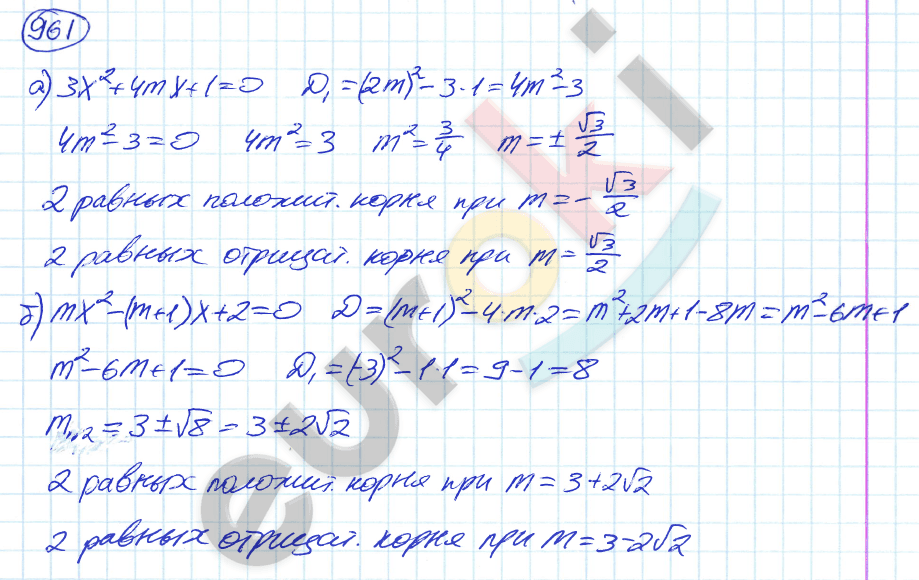 961
а) 3x² + 4mx + 1 = 0 D₁ = (2m)² − 3·1 = 4m² − 3
4m² − 3 = 0 4m² = 3 m² = 3/4 m = ± √3/2
2 равных положит. корня при m = − √3/2
2 равных отрицат. корня при m = √3/2
б) mx² − (m+1)x + 2 = 0 D = (m+1)² − 4·m·2 = m² + 2m + 1 − 8m = m² − 6m + 1
m² − 6m + 1 = 0 D₁ = (−3)² − 1·1 = 9 − 1 = 8
m₁,₂ = 3 ± √8 = 3 ± 2√2
2 равных положит. корня при m = 3 + 2√2
2 равных отрицат. корня при m = 3 − 2√2
euroki